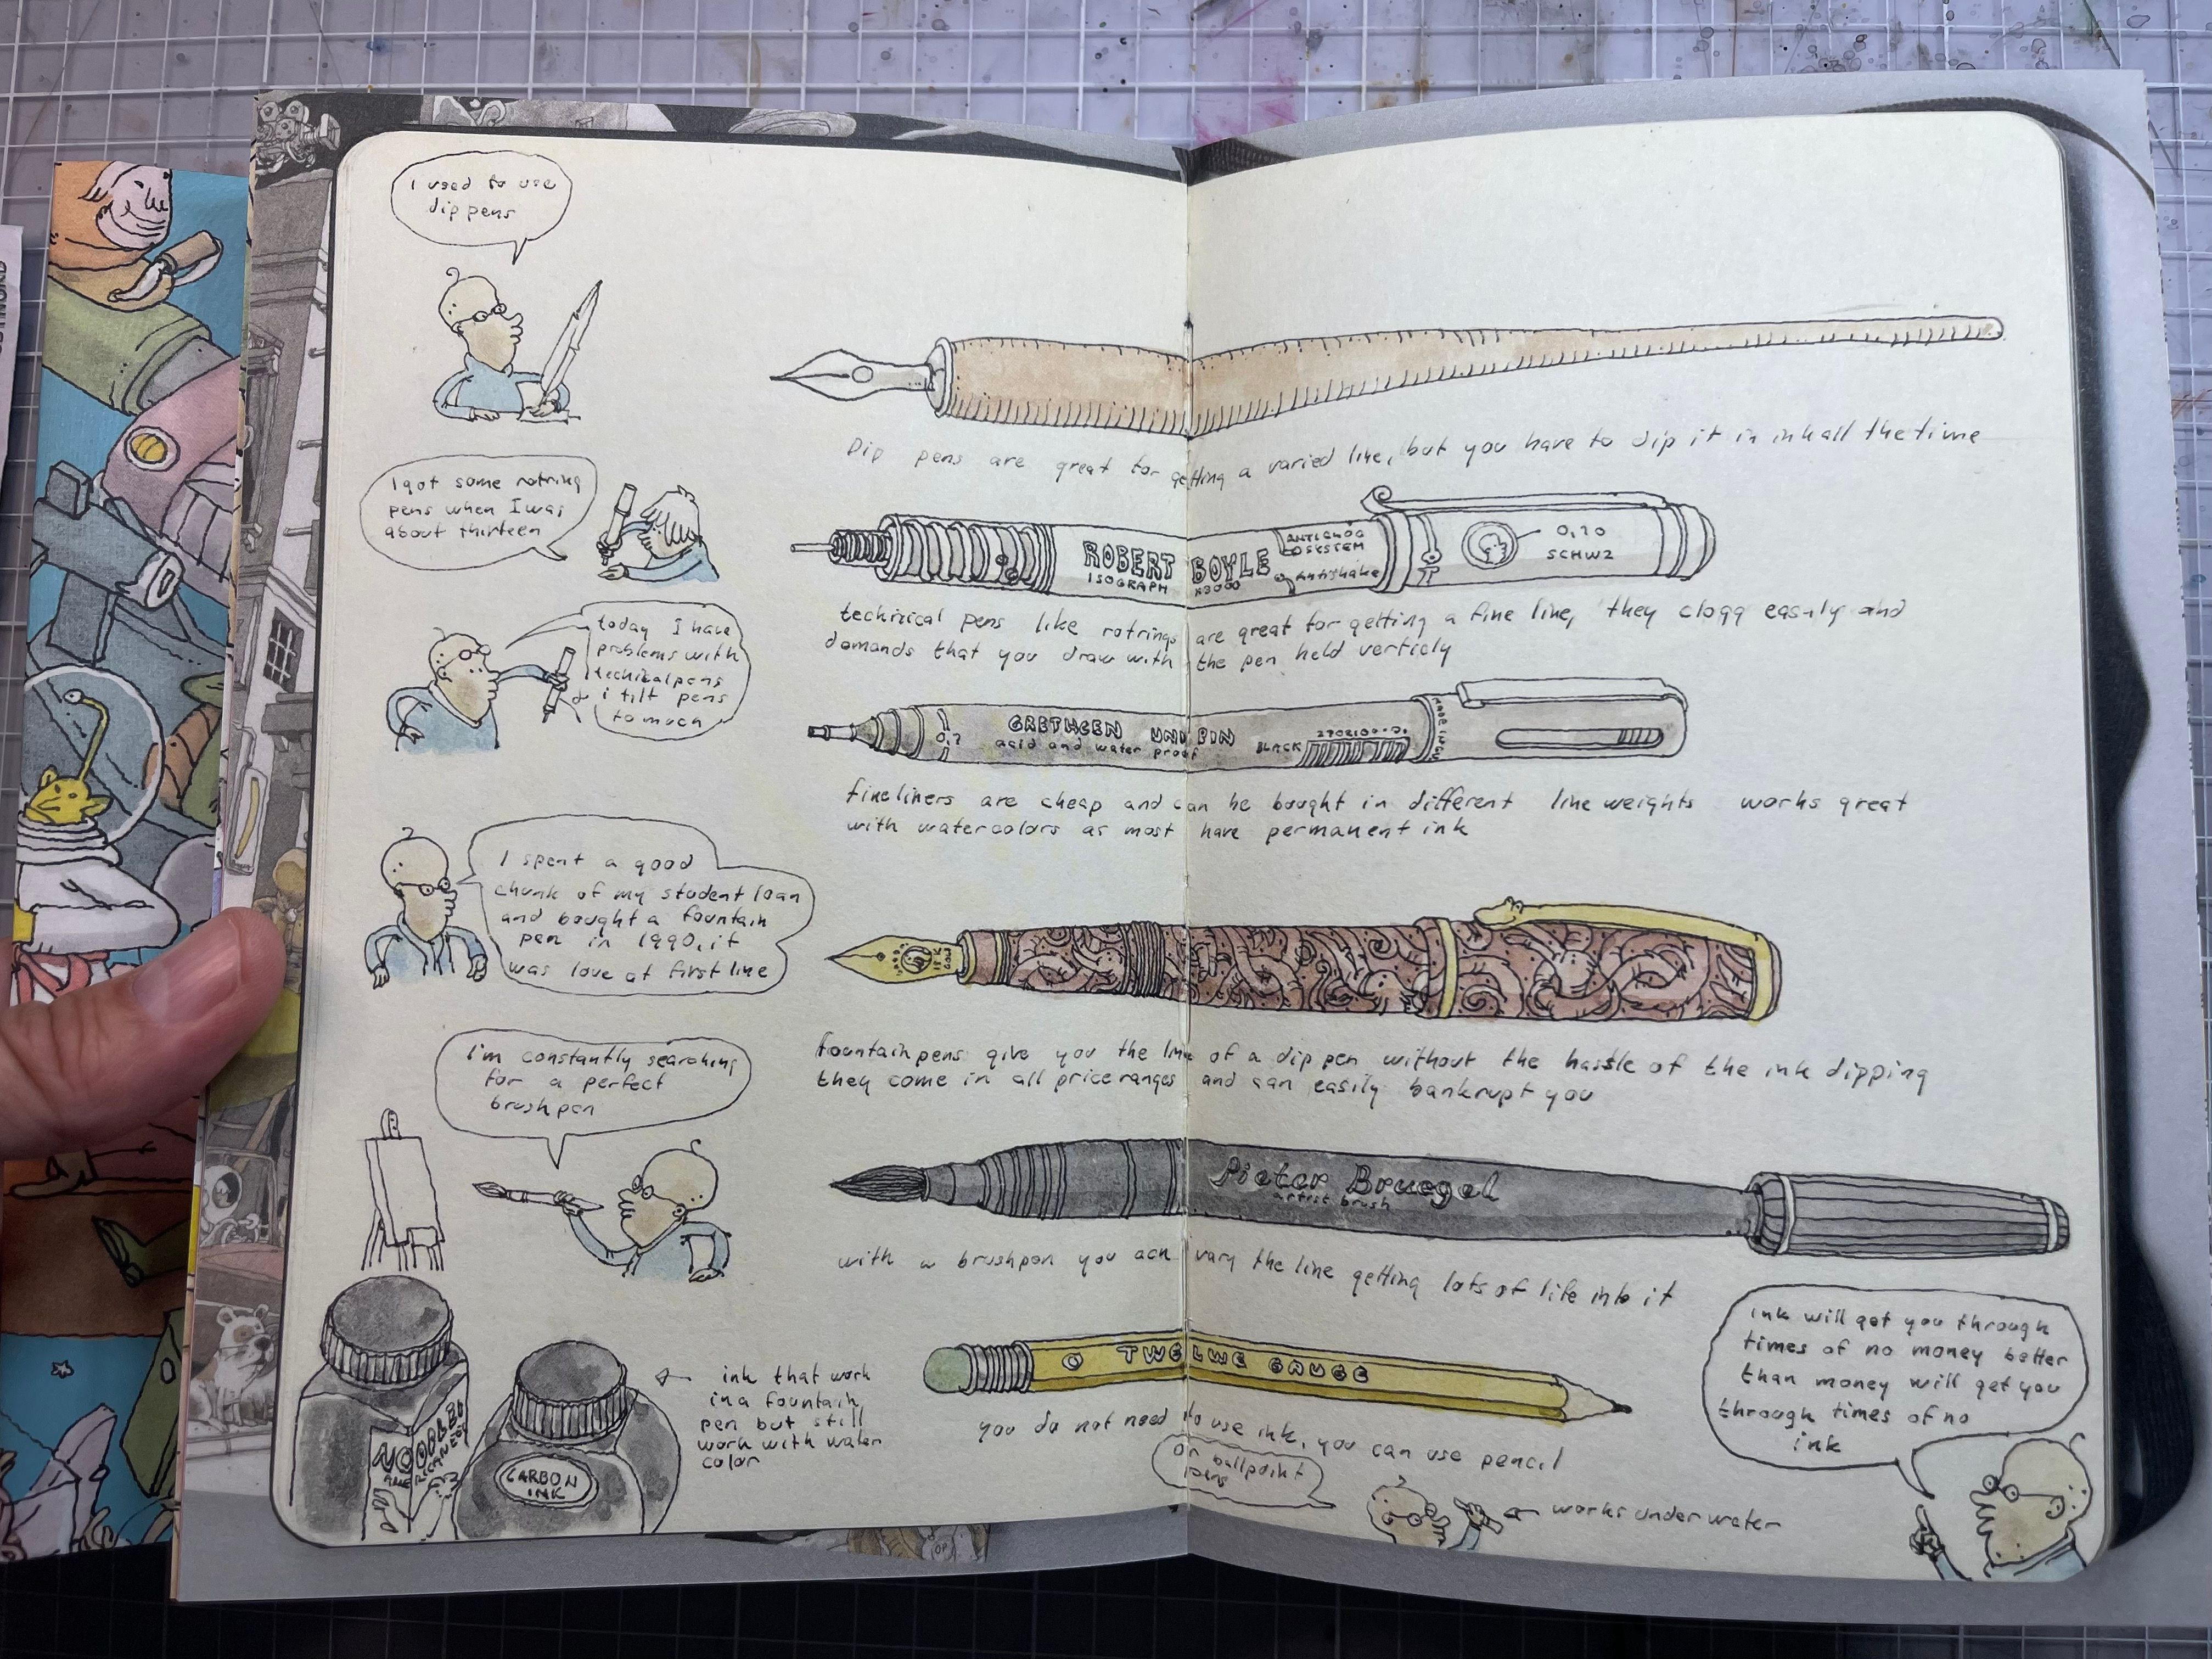 I used to use
dip pens
Dip pens are great for getting a varied line, but you have to dip it in ink all the time
I got some rotring
pens when I was
about thirteen
ROBERT BOYLE
ISOGRAPH
X3000
ANTICLOG
SYSTEM
Antishake
0,20
SCHWZ
technical pens like rotrings are great for getting a fine line, they clogg easily and
demands that you draw with the pen held verticly
today I have
problems with
techical pens
i tilt pens
to much
0,2
GRETHGEN UNI PIN
acid and water proof
BLACK
fineliners are cheap and can be bought in different line weights works great
with watercolors as most have permanent ink
I spent a good
chunk of my student loan
and bought a fountain
pen in 1990, it
was love at first line
18 K
GOLD
fountain pens give you the line of a dip pen without the hassle of the ink dipping
they come in all price ranges and can easily bankrupt you
I'm constantly searching
for a perfect
brushpen
Pieter Bruegel
artist brush
with a brushpen you acn vary the line getting lots of life into it
NOODLERS
CARBON
INK
ink that work
in a fountain
pen but still
work with water
color
TWELWE GAUGE
you do not need to use ink, you can use pencil
or ballpoint
pens
works under water
ink will get you through
times of no money better
than money will get you
through times of no
ink